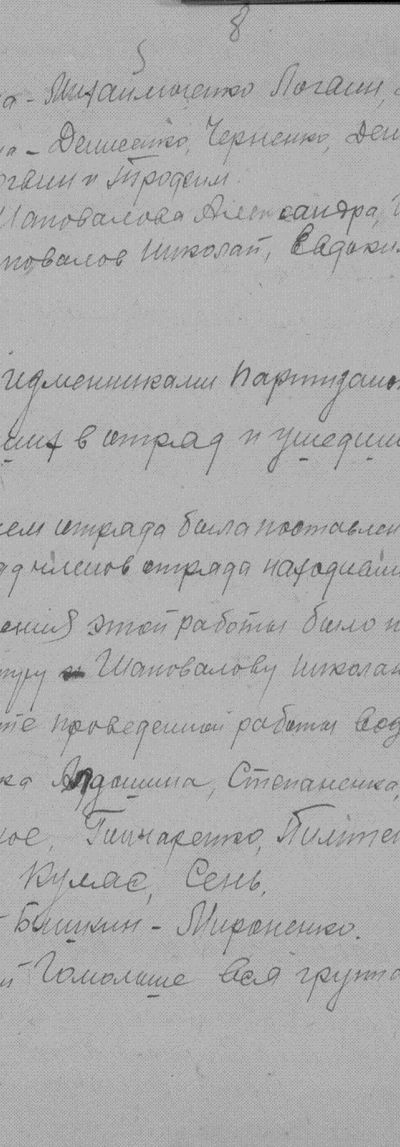 8
5
а - Михайличенко Логвин,
на - Денисенко, Черненко, Ден
огвин и Трофим
Шаповалова Александра,
повалов Николай, Евдоки
изменниками партизан
ших в отряд и ушедши
ем отряда была поставлен
ад членов отряда находивши
ения этой работы было п
туру и Шаповалову Никола
те проведенной работы вод
ка Алдошина, Степаненка,
ное, Гончаренко, Пилипен
Кулас, Сень,
Бишкин - Мироненко.
й Гомольше вся группа